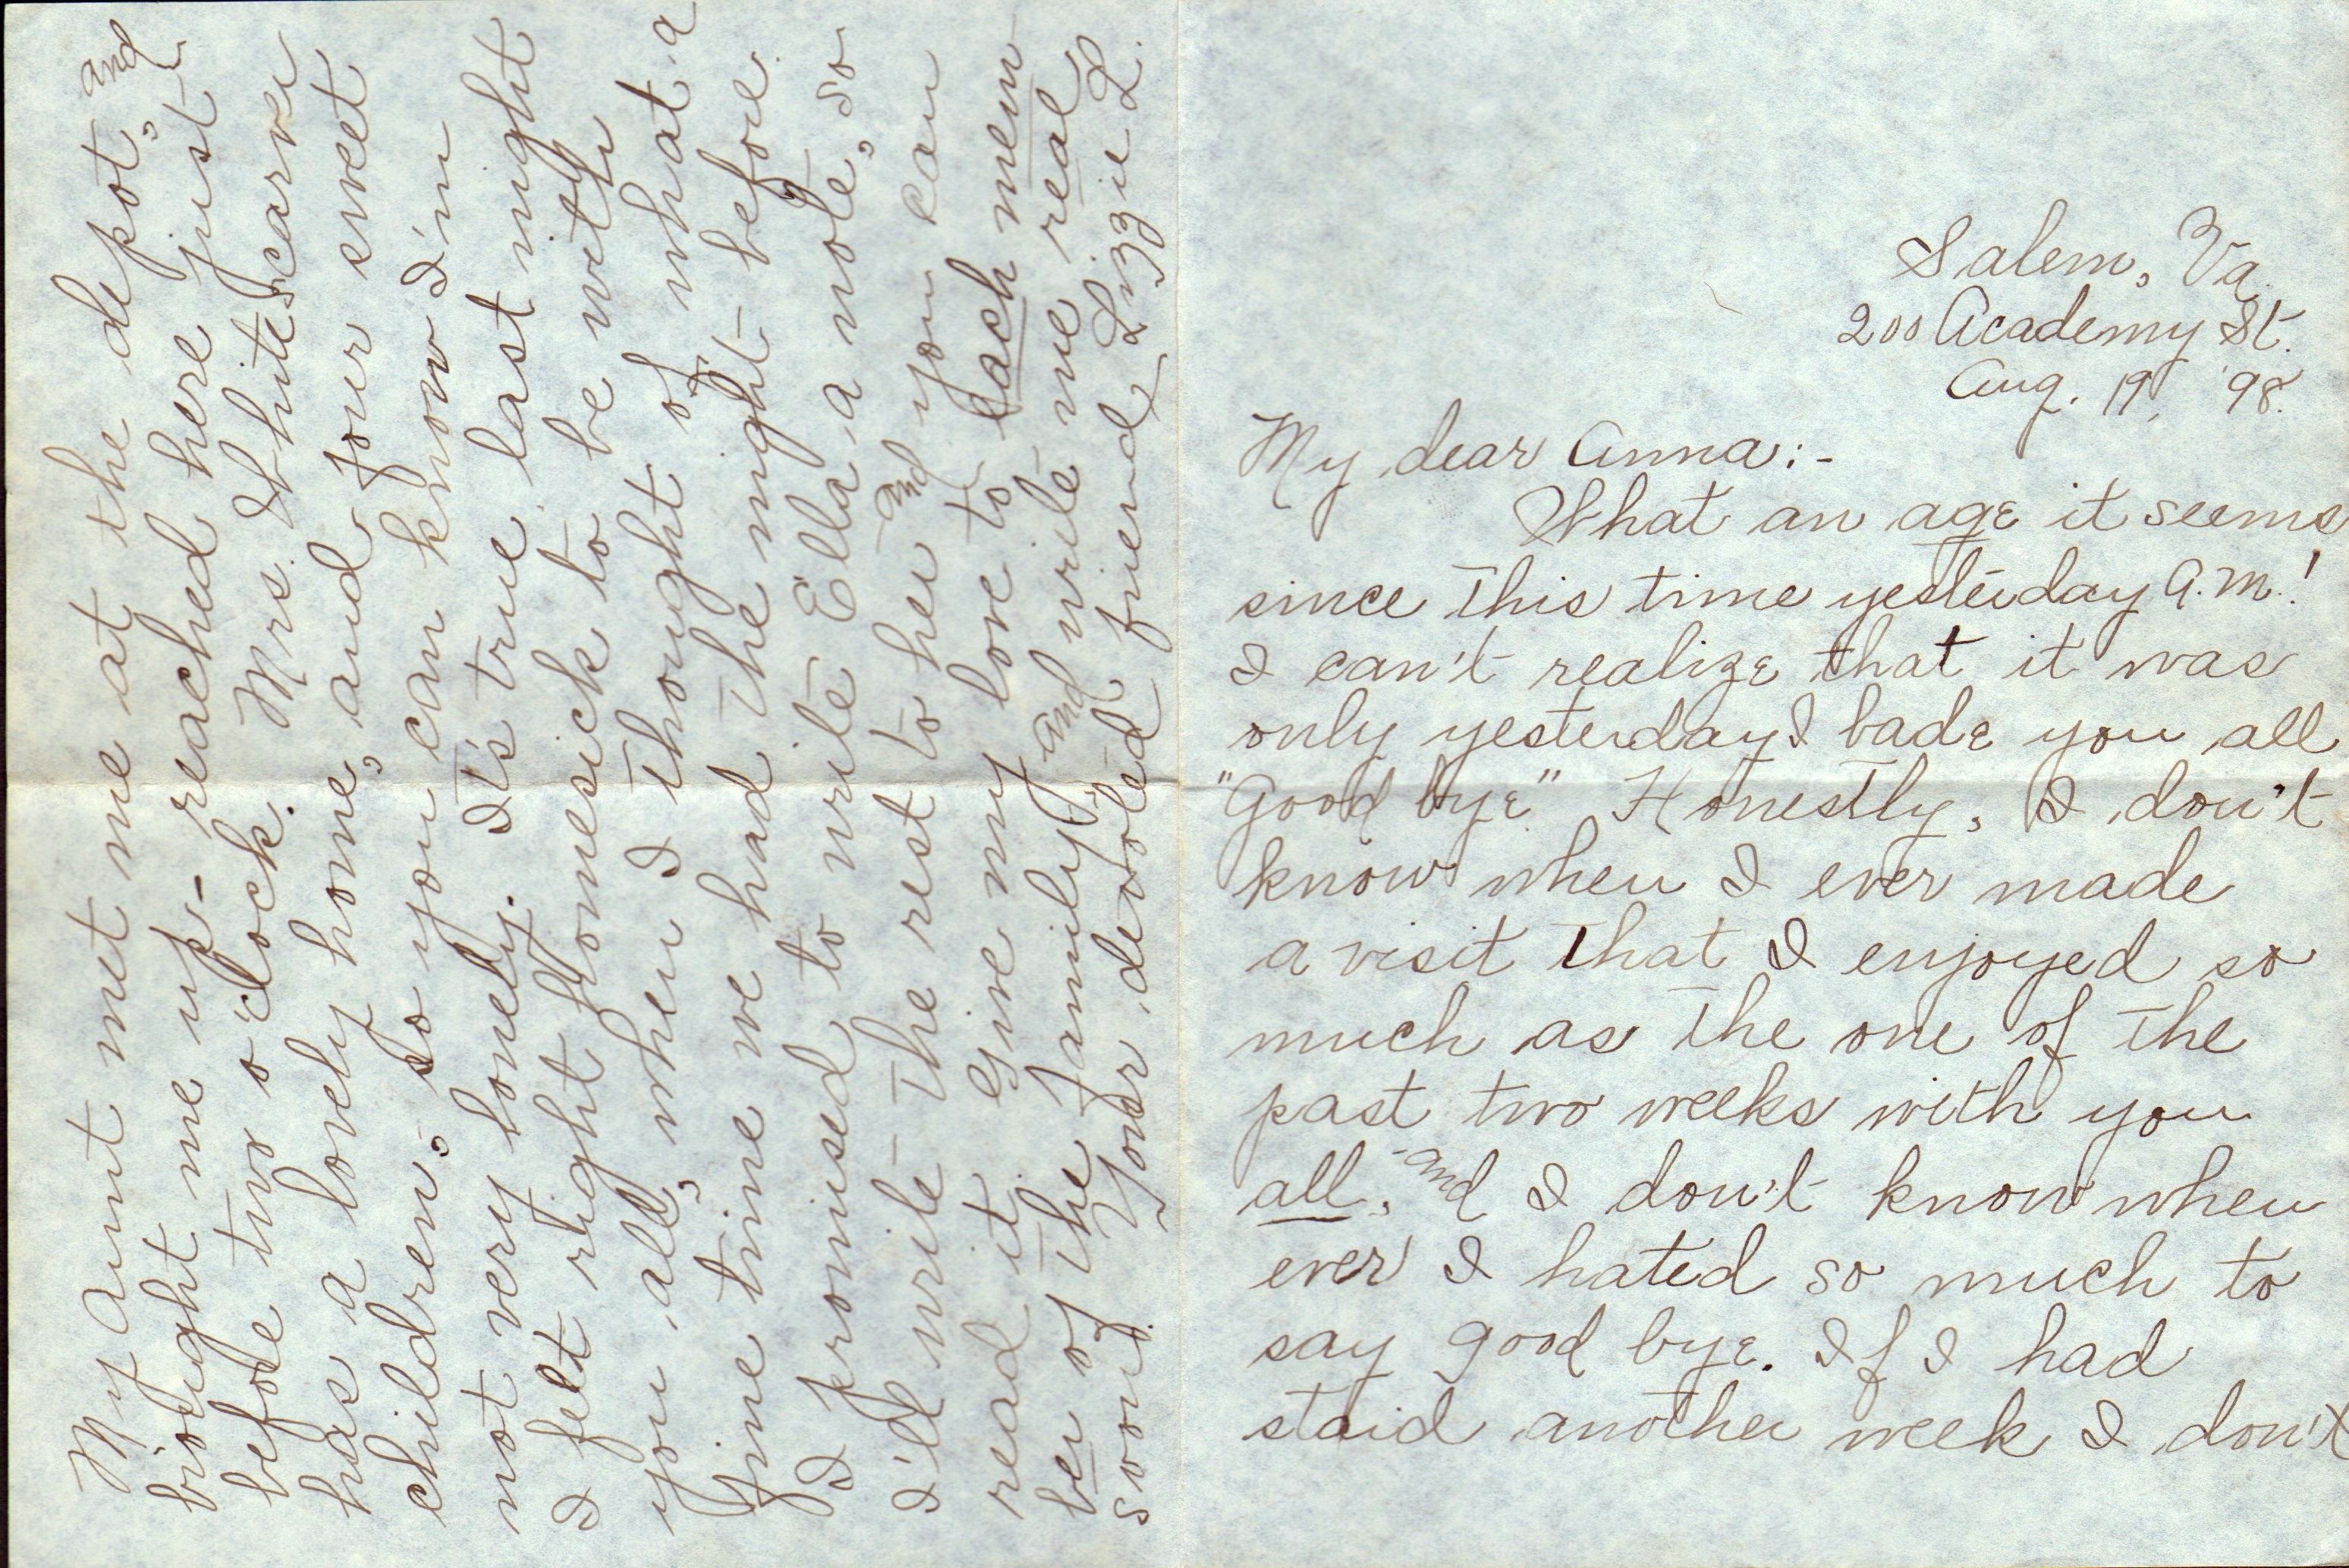 Salem, Va.
200 Academy St.
Aug. 19, '98.
My dear Anna:-
What an age it seems
since this time yesterday A.M.!
I can't realize that it was
only yesterday I bade you all
"Good bye" Honestly, I don't
know when I ever made
a visit that I enjoyed so
much as the one of the
past two weeks with you
all, and I don't know when
ever I hated so much to
say good bye. If I had
staid another week I don't
My Aunt met me at the depot, and
brought me up - reached here just
before two o'clock. Mrs. Whitescarver
has a lovely home, and four sweet
children, so you can know I'm
not very lonely. It's true last night
I felt right homesick to be with
you all, when I thought of what a
fine time we had the night before.
I promised to write Ella a note, so
I'll write the rest to her and you can
read it. Give my love to each mem
ber of the family, and write me real
soon. Your devoted friend Lizzie L.